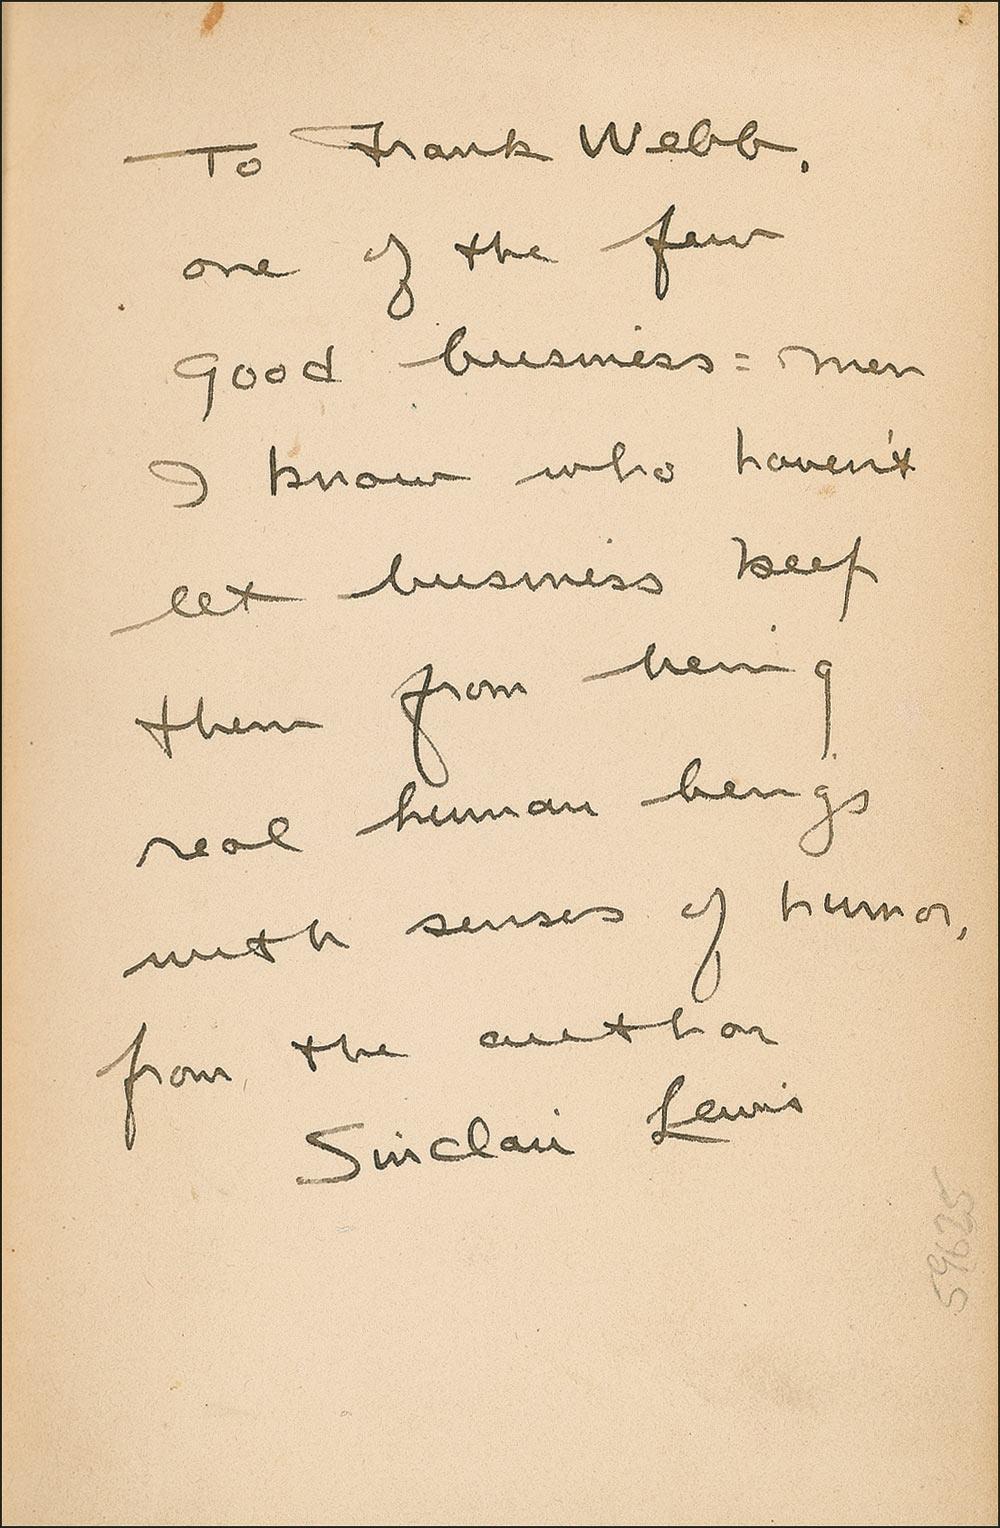 To Frank Webb,
one of the few
good business=men
I know who haven't
let business keep
them from being
real human beings
with senses of humor,
from the author
Sinclair Lewis
59625